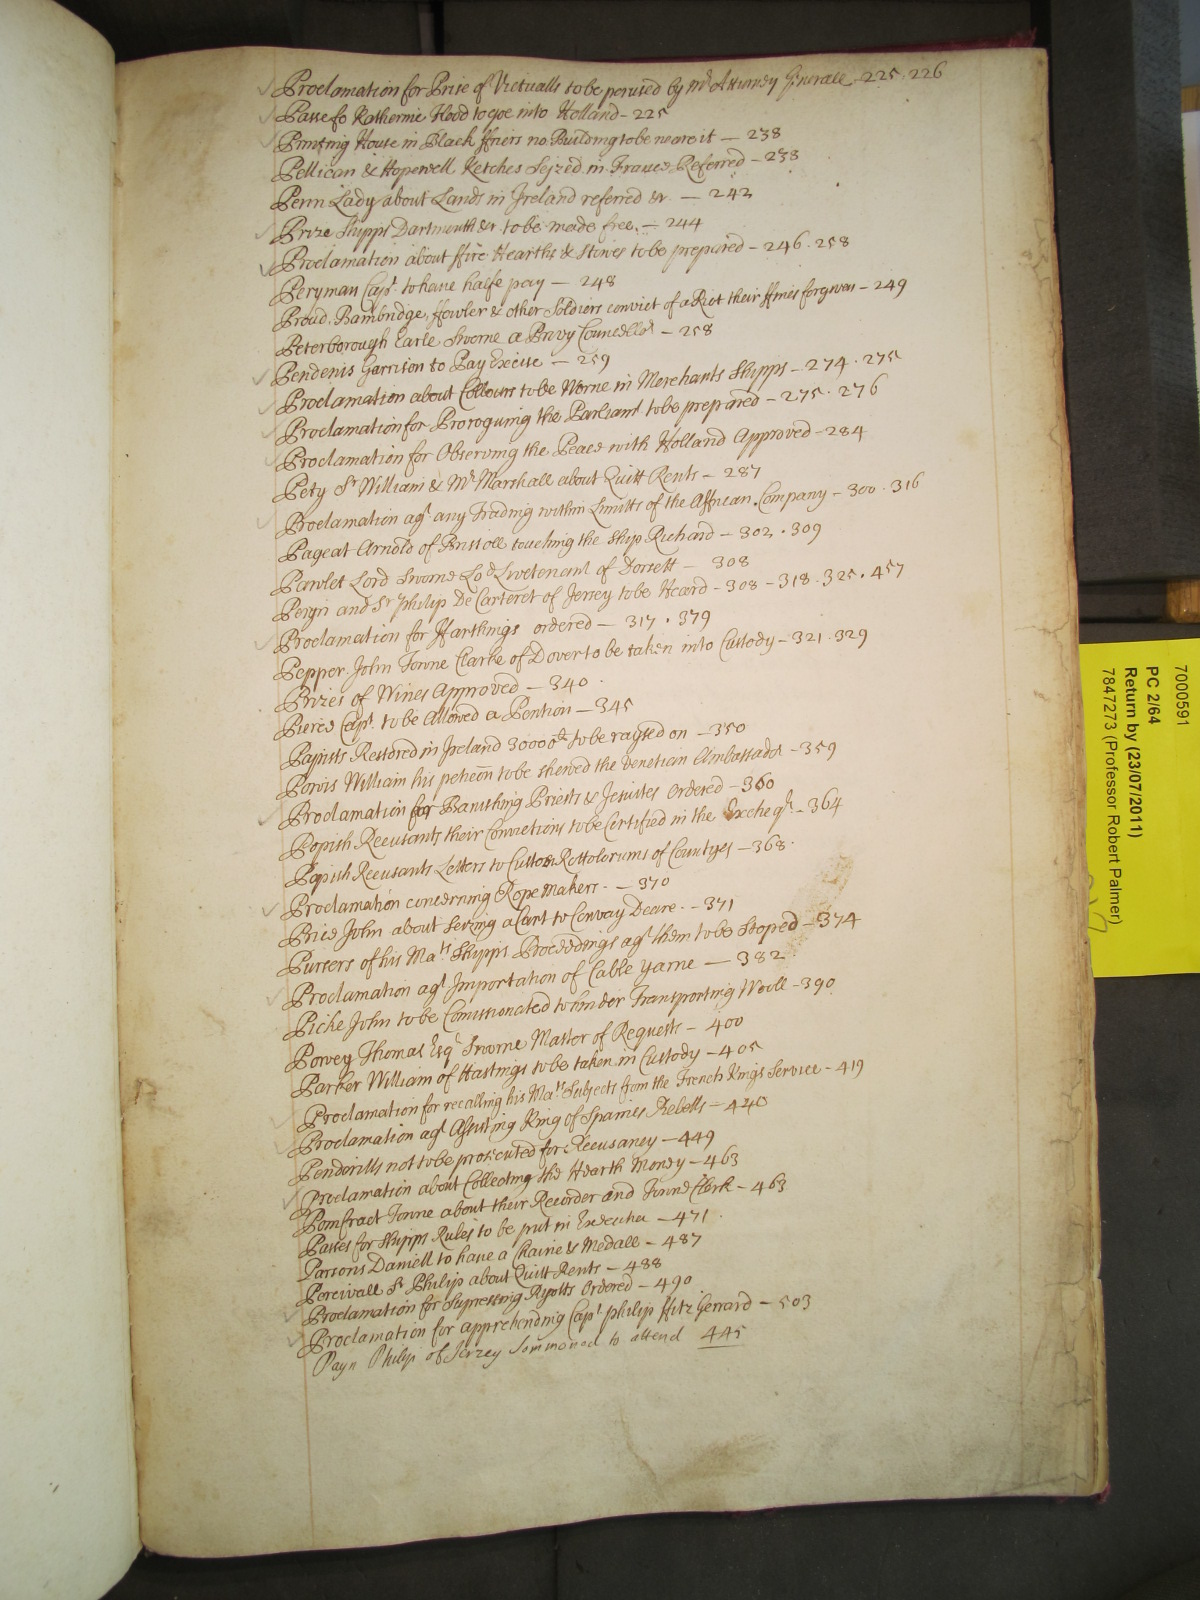 Proclamation for Prise of Victualls to be perused by Mr Atturney Generall - 225 . 226
Passe fo Katherine Hood to goe into Holland - 225
Printing House in Black ffriers no Building to be neare it — 238
Pellican & Hopewell Ketches Seized in France Referred - 238
Penn Lady about Lands in Ireland referred &c — 242
Prize Shipps Dartmouth &c to be made free. — 244
Proclamation about ffire Hearths & Stoves to be prepared - 246 . 258
Peryman Capt. to have halfe pay — 248
Proud, Bambridge, ffowler & other Soldiers convict of a Riot their ffines forgiven - 249
Peterborough Earle Sworne a Privy Councellor - 258
Pendenis Garrison to Pay Excise — 259
Proclamation about Collours to be Worne in Merchants Shipps - 274 . 275
Proclamation for Proroguing the Parliamt to be prepared - 275 . 276
Proclamation for Observing the Peace with Holland Approved - 284
Pety Sr William & Mr Marshall about Quitt Rents - 287
Proclamation agt. any Trading within Limitts of the Affrican Company - 300 . 316
Pageat Arnold of Bristoll touching the Ship Richard - 302 . 309
Pawlet Lord Sworne Lod Livetenant of Dorsett - 308
Peyn and Sr Philip De Carteret of Jersey to be Heard - 308 - 318 . 325 . 457
Proclamation for ffarthings ordered — 317 . 379
Pepper John Towne Clarke of Dover to be taken into Custody - 321 . 329
Prizes of Wines Approved — 340
Pierce Capt. to be Allowed a Pention — 345
Papists Restored in Ireland 30000 to be raysed on - 350
William his peticon to be shewed the Venetian Ambassador - 359
Proclamation for Banishing Priests & Jesuites Ordered - 360
Popish Recusants their Convictions to be Certified in the Excheqr. - 364
Papish Recusants Letters to Custos Rottolorums of Countyes - 368
Proclamation concerning Rope Makers. — 370
Price John about Seizing a Cart to Convay Deare. - 371
Pursers of his Mats Shipps Proceedings agt them to be Stoped - 374
Proclamation agt Importation of Cable yarne — 382
Picke John to be Comissionated to hinder Transporting Wooll - 390
Povey Thomas Esqr Sworne Master of Requests - 400
Parker William of Hastings to be taken in Custody - 405
Proclamation for recalling his Mats Subjects from the French Kings Service - 419
Proclamation agt Assisting King of Spaines Rebells - 440
Penderills not to be prosecuted for Recusancy - 449
Proclamation about Collecting the Hearth Money - 463
Pomfract Towne about their Recorder and Towne Clerk - 463
Passes for Shipps Rules to be put in Execution - 471
Parsons Daniell to have a Chaine & Medall - 487
Percivall Sr Philip about Quitt Rents - 488
Proclamation for Supressing Ryotts Ordered - 490
Proclamation for apprehending Capt Philip ffitz Gerrard - 503
Payn Philip of Jerzey Sommoned to attend 445
7000591
PC 2/64
Return by (23/07/2011)
7847273 (Professor Robert Palmer)